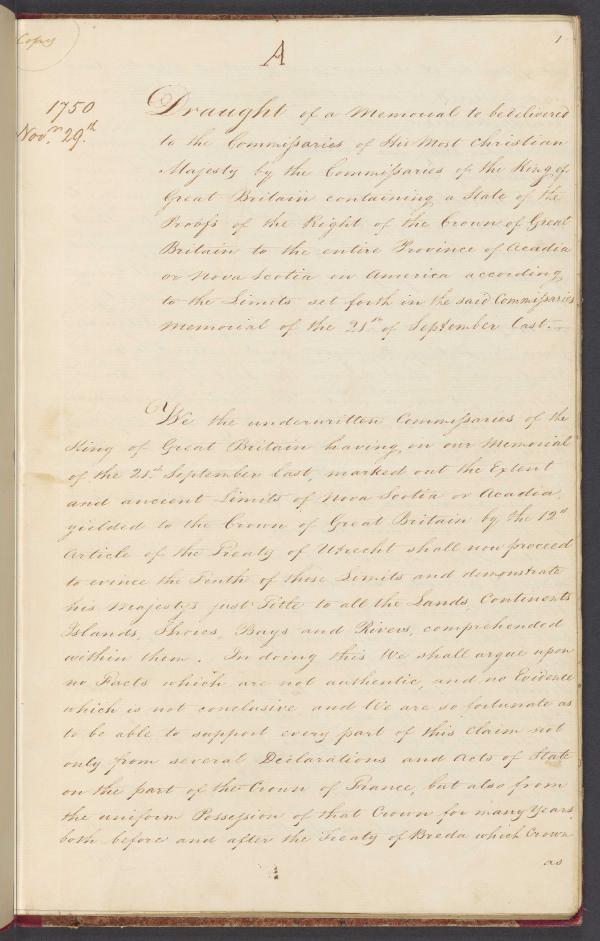 Copy
A
1
1750
Nov.r 29.th
Draught of a Memorial to be delivered
to the Commissaries of His Most Christian
Majesty by the Commissaries of the King of
Great Britain containing a State of the
Proofs of the Right of the Crown of Great
Britain to the entire Province of Acadia
or Nova Scotia in America according
to the Limits set forth in the said Commissaries
Memorial of the 21st of September last.
We the underwritten Commissaries of the
King of Great Britain having, in our Memorial
of the 21st September last, marked out the Extent
and ancient Limits of Nova Scotia or Acadia,
yielded to the Crown of Great Britain by the 12th
Article of the Treaty of Utrecht shall now proceed
to evince the Truth of those Limits and demonstrate
his Majestys just Title to all the Lands, Continents
Islands, Shores, Bays and Rivers, comprehended
within them. In doing this We shall argue upon
no Facts which are not authentic, and no Evidence
which is not conclusive and We are so fortunate as
to be able to support every part of this Claim not
only from several Declarations and Acts of State
on the part of the Crown of France, but also from
the uniform Possession of that Crown for many Years,
both before and after the Treaty of Breda which Crown
as